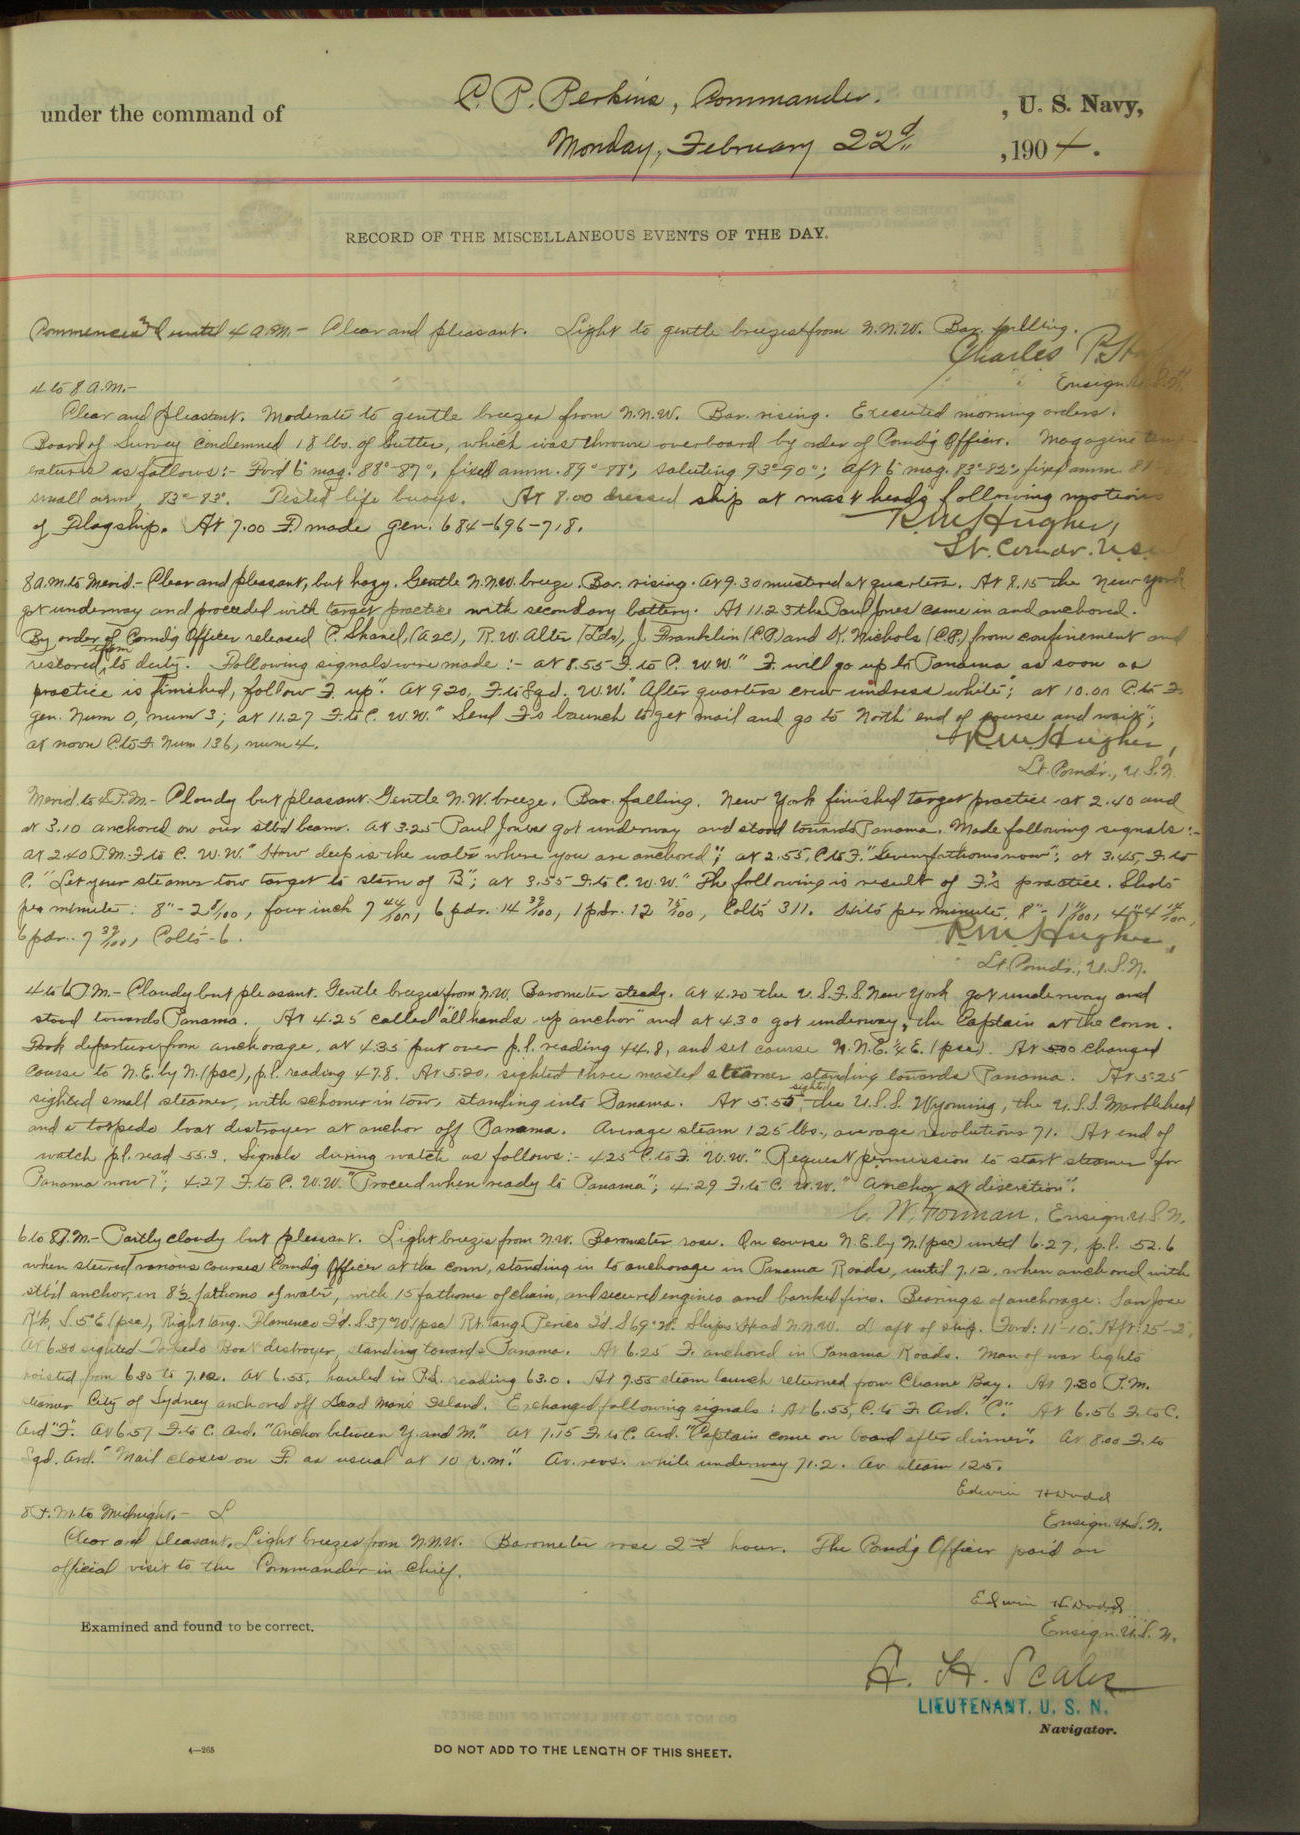 under the command of C. P. Perkins, Commander. , U. S. Navy,
Monday, February 22d , 1904.
RECORD OF THE MISCELLANEOUS EVENTS OF THE DAY.
Commences & until 4 A.M.- Clear and pleasant. Light to gentle breezes from N.N.W. Bar. falling.
Charles P.
Ensign
4 to 8 A.M.-
Clear and pleasant. Moderate to gentle breezes from N.N.W. Bar. rising. Executed morning orders.
Board of Survey condemned 18 lbs. of butter, which was thrown overboard by order of Comd'g Officer. Magazine temp-
eratures as follows:- For'd 6" mag. 88°-87°, fixed amm. 89°-88°, saluting 93°-90°; aft 6" mag. 83°-82°, fixed amm.
small arms, 83°-83°. Tested life buoys. At 8.00 dressed ship at mast heads following motions
of Flagship. At 7.00 F. made gen. 684-696-718.
R M Hughes,
Lt. Comdr. U.S.
8 A.M. to Merid.- Clear and pleasant, but hazy. Gentle N.N.W. breeze. Bar. rising. At 9.30 mustered at quarters. At 8.15 the New York
got underway and proceeded with target practice with secondary battery. At 11.25 the Paul Jones came in and anchored.
By order of Comd'g Officer released C. (Asc), R. W. Alter (Lds), J. Franklin (C.P.) and K. Nichols (C.P.) from confinement and
restored them to duty. Following signals were made:- at 8.55 F. to C. W.W. "F. will go up to Panama as soon as
practice is finished, follow F. up". At 9.20, F. to Sqd. W.W. "After quarters crew undress white"; at 10.00 C. to F.
gen. Num 0, num 3; at 11.27 F. to C. W.W. "Send F's launch to get mail and go to North end of course and wait";
at noon C. to F. Num 136, num 4.
R M Hughes,
Lt. Comdr., U.S.N.
Merid to 4 P.M.- Cloudy but pleasant. Gentle N.W. breeze. Bar. falling. New York finished target practice at 2.40 and
at 3.10 anchored on our stbd beam. At 3.25 Paul Jones got underway and stood towards Panama. Made following signals:-
at 2.40 P.M. F. to C. W.W. "How deep is the water where you are anchored"; at 2.55, C. to F. "Seven fathoms now"; at 3.45, F. to
C. "Let your steamer tow target to stern of B"; at 3.55 F. to C. W.W. "The following is result of F.'s practice. Shots
per minute: 8"-2 /100, four inch 7 44/100, 6 pdr. 14 39/100, 1 pdr. 12 75/100, Colts 311. Hits per minute, 8"- 1 /100, 4"-4 /100,
6 pdr. 7 39/100, Colts-6.
R M Hughes,
Lt. Comdr., U.S.N.
4 to 6 P.M.- Cloudy but pleasant. Gentle breezes from N.W. Barometer steady. At 4.20 the U.S.F.S. New York got underway and
stood towards Panama. At 4.25 called "all hands up anchor" and at 4.30 got underway, the Captain at the conn.
Took departure from anchorage, at 4.35 put over p.l. reading 44.8, and set course N.N.E. ¼ E. (psc). At 5.00 changed
course to N.E. by N. (psc), p.l. reading 47.8. At 5.20, sighted three masted steamer standing towards Panama. At 5.25
sighted small steamer, with schooner in tow, standing into Panama. At 5.55 sighted the U.S.S. Wyoming, the U.S.S. Marblehead
and a torpedo boat destroyer at anchor off Panama. Average steam 125 lbs., average revolutions 71. At end of
watch p.l. read 55.3. Signals during watch as follows:- 4.25 C. to F. W.W. "Request permission to start steamer for
Panama now?"; 4.27 F. to C. W.W. "Proceed when ready to Panama"; 4.29 F. to C. W.W. "Anchor at discretion".
C. W. Forman, Ensign U.S.N.
6 to 8 P.M.- Partly cloudy but pleasant. Light breezes from N.W. Barometer rose. On course N.E. by N. (psc) until 6.27, p.l. 52.6
when steered various courses Comd'g Officer at the conn, standing in to anchorage in Panama Roads, until 7.12, when anchored with
stb'd anchor, in 8½ fathoms of water, with 15 fathoms of chain, and secured engines and banked fires. Bearings of anchorage: San Jose
R'k, S. 5° E (psc), Right tang. Flamenco I'd. S 37° W (psc) Rt. tang Perico I'd. S 69° W. Ships Head N.N.W. D aft of ship. Ford: 11'-10". Aft: 15'-2".
At 6.30 sighted Torpedo Boat destroyer, standing towards Panama. At 6.25 F. anchored in Panama Roads. Man of war lights
hoisted from 6.30 to 7.12. At 6.55, hauled in P.L. reading 63.0. At 7.55 steam launch returned from Chame Bay. At 7.30 P.M.
steamer City of Sydney anchored off Dead Man's Island. Exchanged following signals: At 6.55, C. to F. Ard. "C". At 6.56 F. to C.
Ard "F". At 6.57 F. to C. Ard. "Anchor between Y. and M." At 7.15 F. to C. Ard. "Captain come on board after dinner". At 8.00 F. to
Sqd. Ard. "Mail closes on F. as usual at 10 p.m." Av. revs. while underway 71.2. Av steam 125.
Edwin H Dodd
Ensign U.S.N.
8 P.M. to Midnight.-
Clear and pleasant. Light breezes from N.N.W. Barometer rose 2nd hour. The Comd'g Officer paid an
official visit to the Commander in Chief.
Edwin H. Dodd
Ensign U.S.N.
Examined and found to be correct.
A. H. Scales
LIEUTENANT, U. S. N.
Navigator.
4—265
DO NOT ADD TO THE LENGTH OF THIS SHEET.